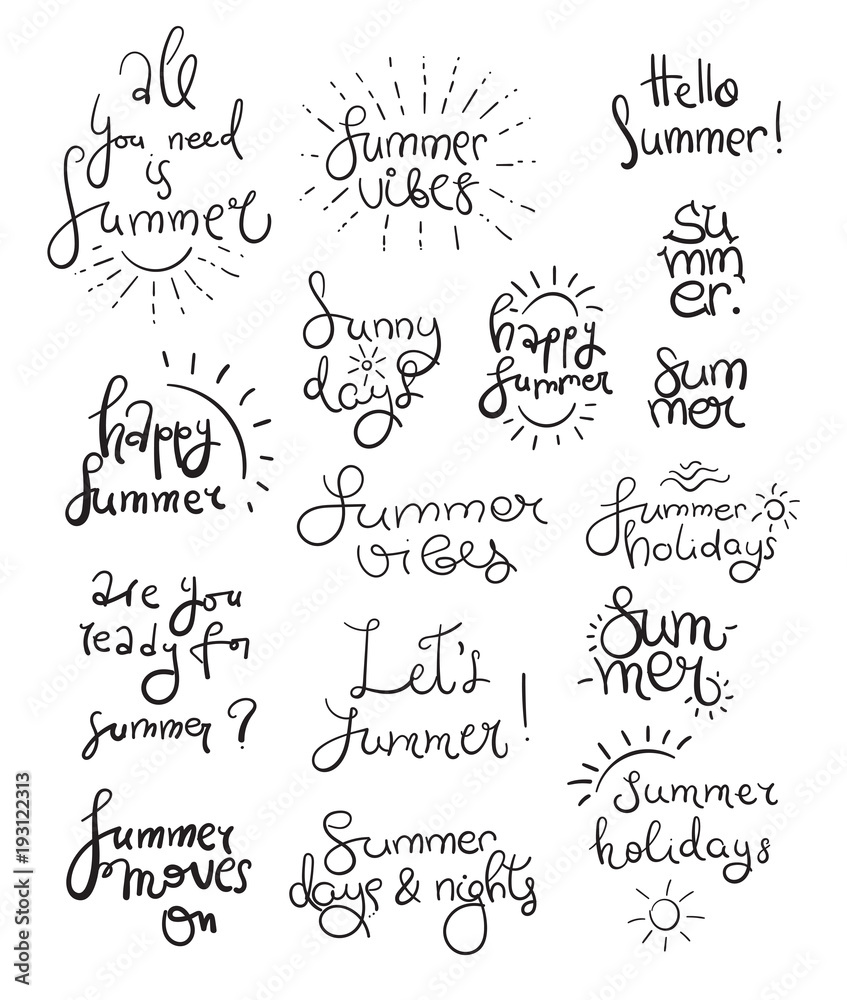 all
you need
is
summer
summer
vibes
Hello
Summer!
su
mm
er.
sunny
days
happy
summer
sum
mer
happy
summer
summer
vibes
summer
holidays
are you
ready for
summer?
Let's
summer!
sum-
mer
summer
holidays
summer
moves
on
summer
days & nights
Adobe Stock | #193122313